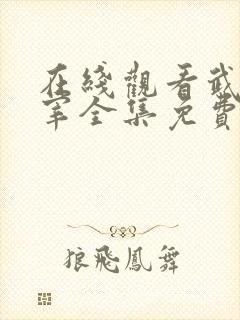 在綫觀看武
宰全集免費
狼飛鳳舞